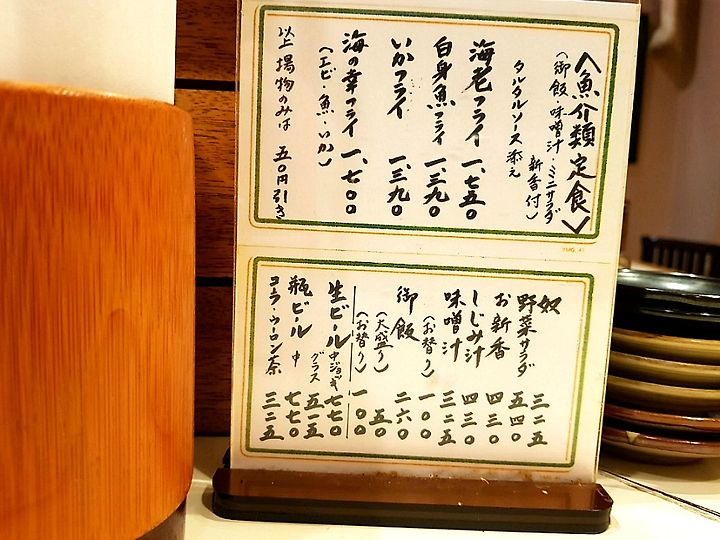 〈魚介類定食〉
(御飯・味噌汁・ミニサラダ
新香付)
タルタルソース添え
海老フライ 一、七五〇
白身魚フライ 一、三九〇
いかフライ 一、三九〇
海の幸フライ 一、七〇〇
(エビ・魚・いか)
以上揚物のみは 五〇円引き
奴 三二五
野菜サラダ 五四〇
お新香 四三〇
しじみ汁 四三〇
味噌汁 三二五
(お替り) 一〇〇
御飯 二六〇
(大盛り) 五〇
(お替り) 一〇〇
生ビール 中ジョッキ 七七〇
グラス 五一五
瓶ビール 中 七七〇
コーラ・ウーロン茶 三二五